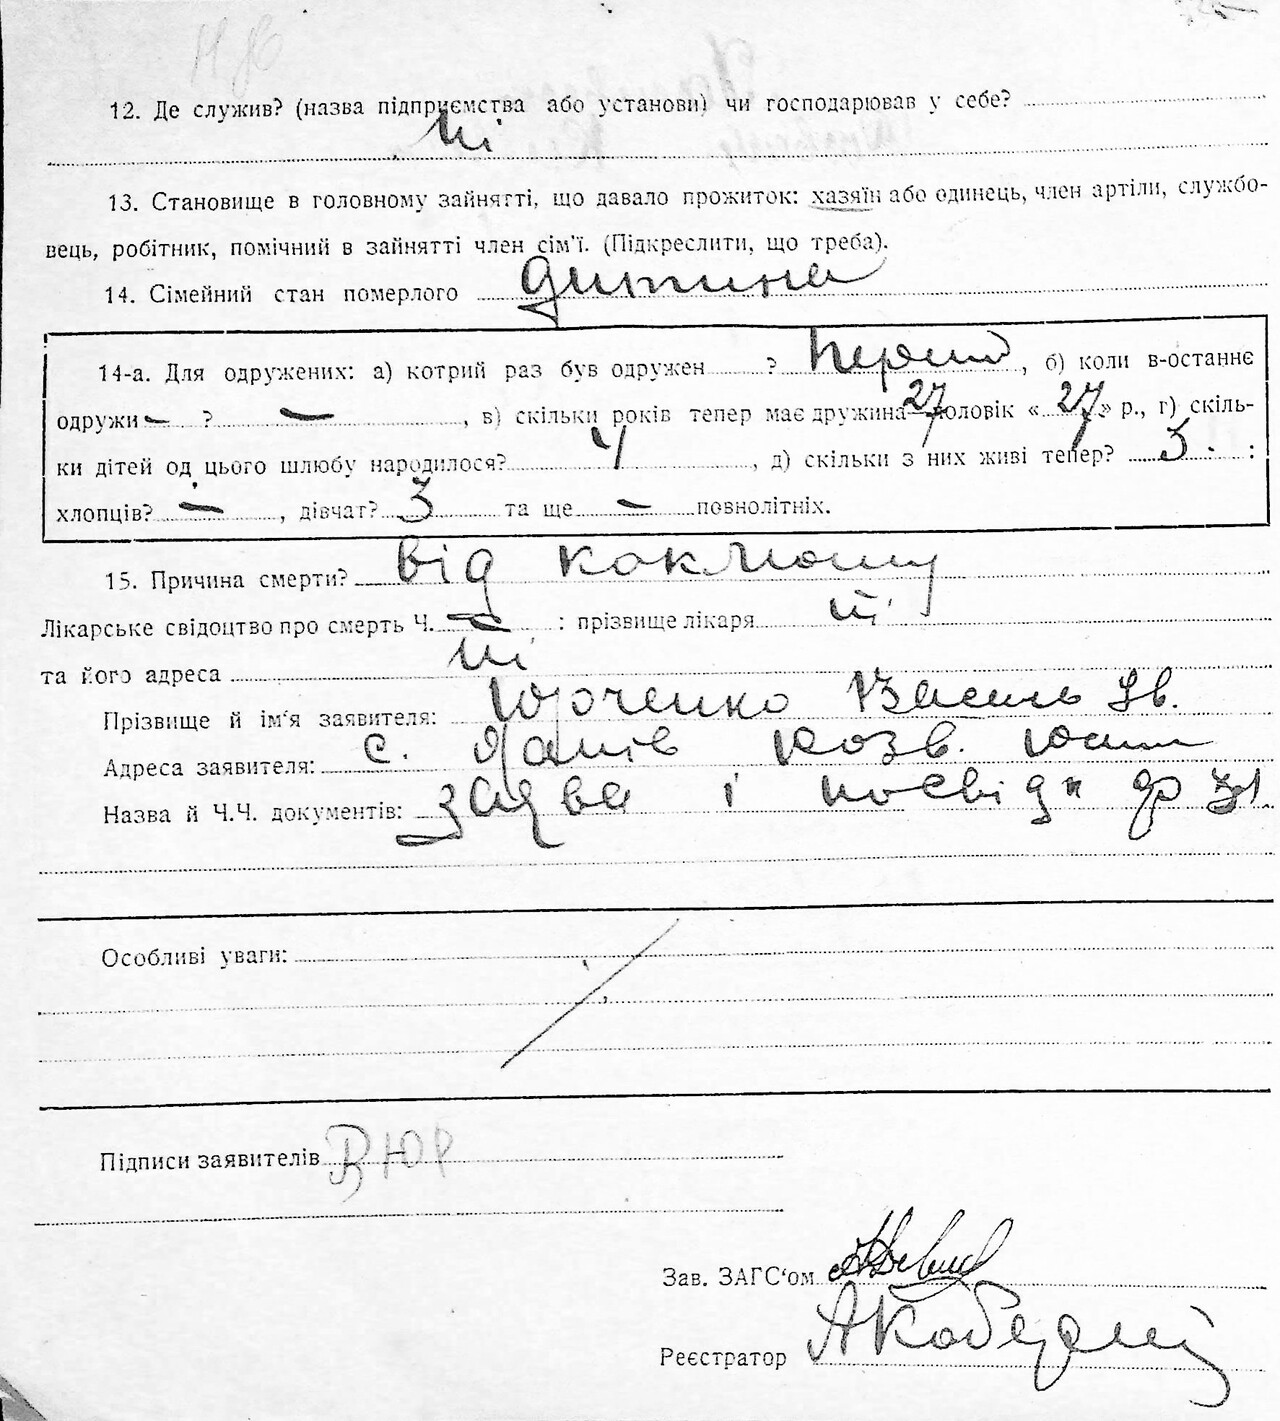 12. Де служив? (назва підприємства або установи) чи господарював у себе?
ні
13. Становище в головному зайнятті, що давало прожиток: хазяїн або одинець, член артіли, службо-
вець, робітник, помічний в зайнятті член сім'ї. (Підкреслити, що треба).
14. Сімейний стан померлого дитина
14-а. Для одружених: а) котрий раз був одружен ? перший, б) коли в-останнє
одружи— ? —, в) скільки років тепер має дружина 27 чоловік «27» р., г) скіль-
ки дітей од цього шлюбу народилося? 4, д) скільки з них живі тепер? 3. :
хлопців? —, дівчат? 3 та ще — повнолітніх.
15. Причина смерти? від коклюшу
Лікарське свідоцтво про смерть Ч. — : прізвище лікаря ні
та його адреса ні
Прізвище й ім'я заявителя: Юрченко Василь Ів.
Адреса заявителя: с. Янів
Назва й Ч.Ч. документів: заява і посвідк
Особливі уваги:
Підписи заявителів ВЮР
Зав. ЗАГС'ом
Реєстратор